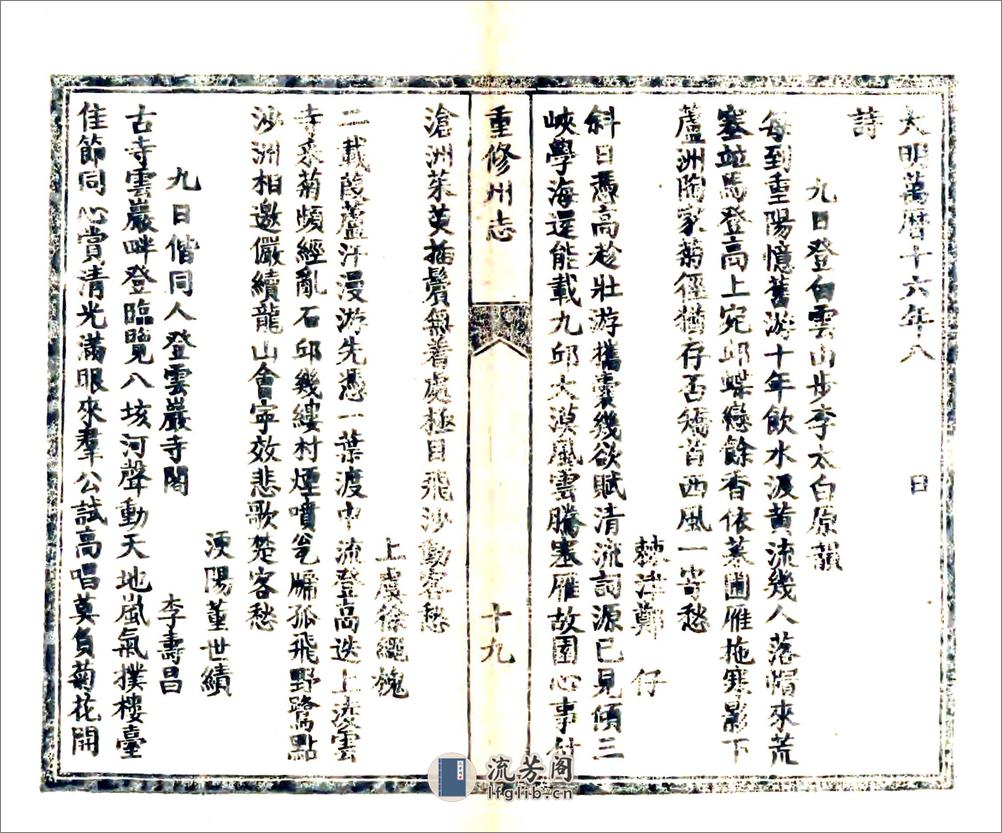 大明萬曆十六年八 日
詩
九日登白雲山步李太白原韻
每到重陽憶舊游十年飲水汲黃流幾人落帽來荒
塞竝馬登高上宛邱蝶戀餘香依菉圃雁拖寒影下
蘆洲陶家菊徑猶存否矯首西風一寄愁
鄭 仔
斜日憑高趁壯游攜囊幾欲賦清流詞源已見傾三
峽學海還能載九邱大漠風雲騰塞雁故園心事付
滄洲茱萸插鬢無着處極目飛沙動客愁
上虞徐繩
二載葭蘆汗漫游先憑一葉渡中流登高迭上凌雲
寺采菊頻經亂石邱幾縷村煙噴瓮牖孤飛野鷺點
沙洲相邀儼續龍山會寧效悲歌楚客愁
溧陽董世績
九日偕同人登雲巖寺閣
李壽昌
古寺雲巖畔登臨覽八垓河聲動天地嵐氣撲樓臺
佳節同心賞清光滿眼來羣公試高唱莫負菊花開
重修州志
十九
流芳阁
lfglib.cn